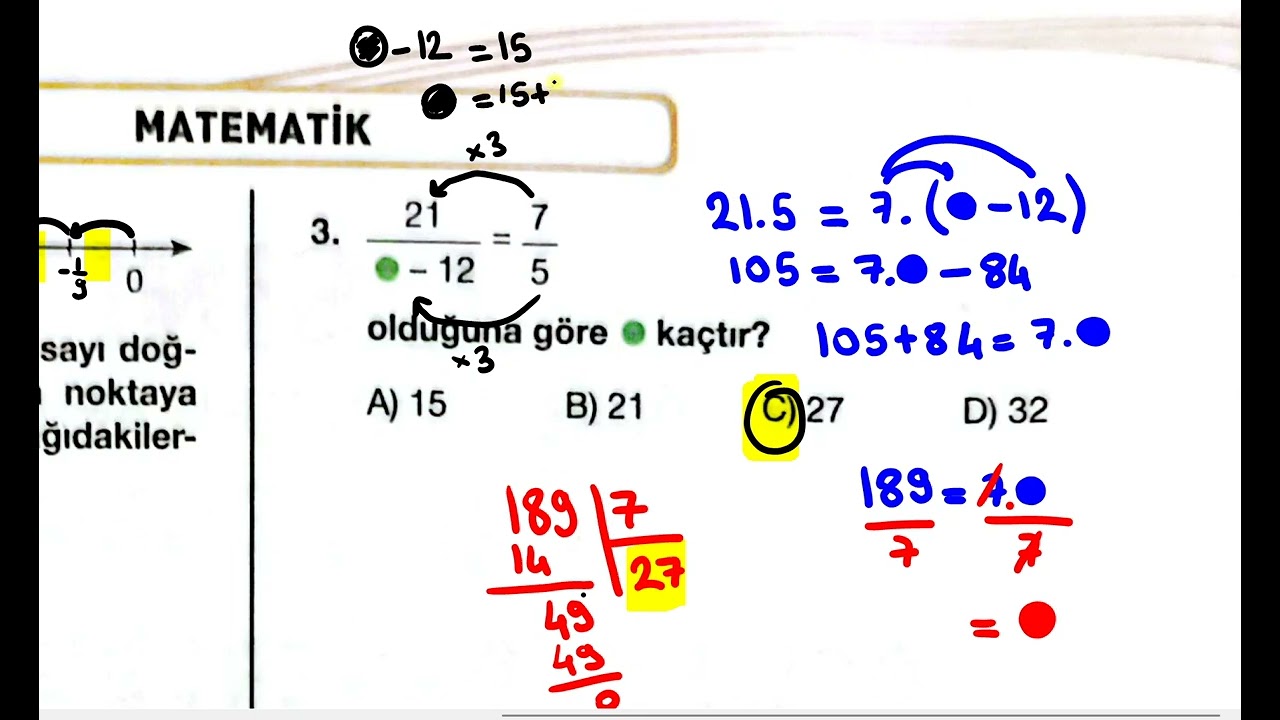 ●-12 = 15
● = 15+
MATEMATİK
×3
3. 21 / ● - 12 = 7 / 5
×3
olduğuna göre ● kaçtır?
A) 15 B) 21 C) 27 D) 32
-1/9 0
sayı doğ-
noktaya
ğıdakiler-
21.5 = 7.(●-12)
105 = 7.● - 84
105+84 = 7.●
189 = 7.●
7 7
= ●
189 7
14 27
49
49
0